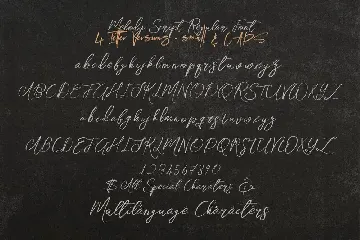 Melody Script Regular Font
4 Letter Versions - small & CAPS
abcdefghijklmnopqrstuvwxyz
ABCDEFGHIJKLMNOPQRSTUVWXYZ
abcdefghijklmnopqrstuvwxyz
ABCDEFGHIJKLMNOPQRSTUVWXYZ
1234567890
All Special Characters
Multilanguage Characters